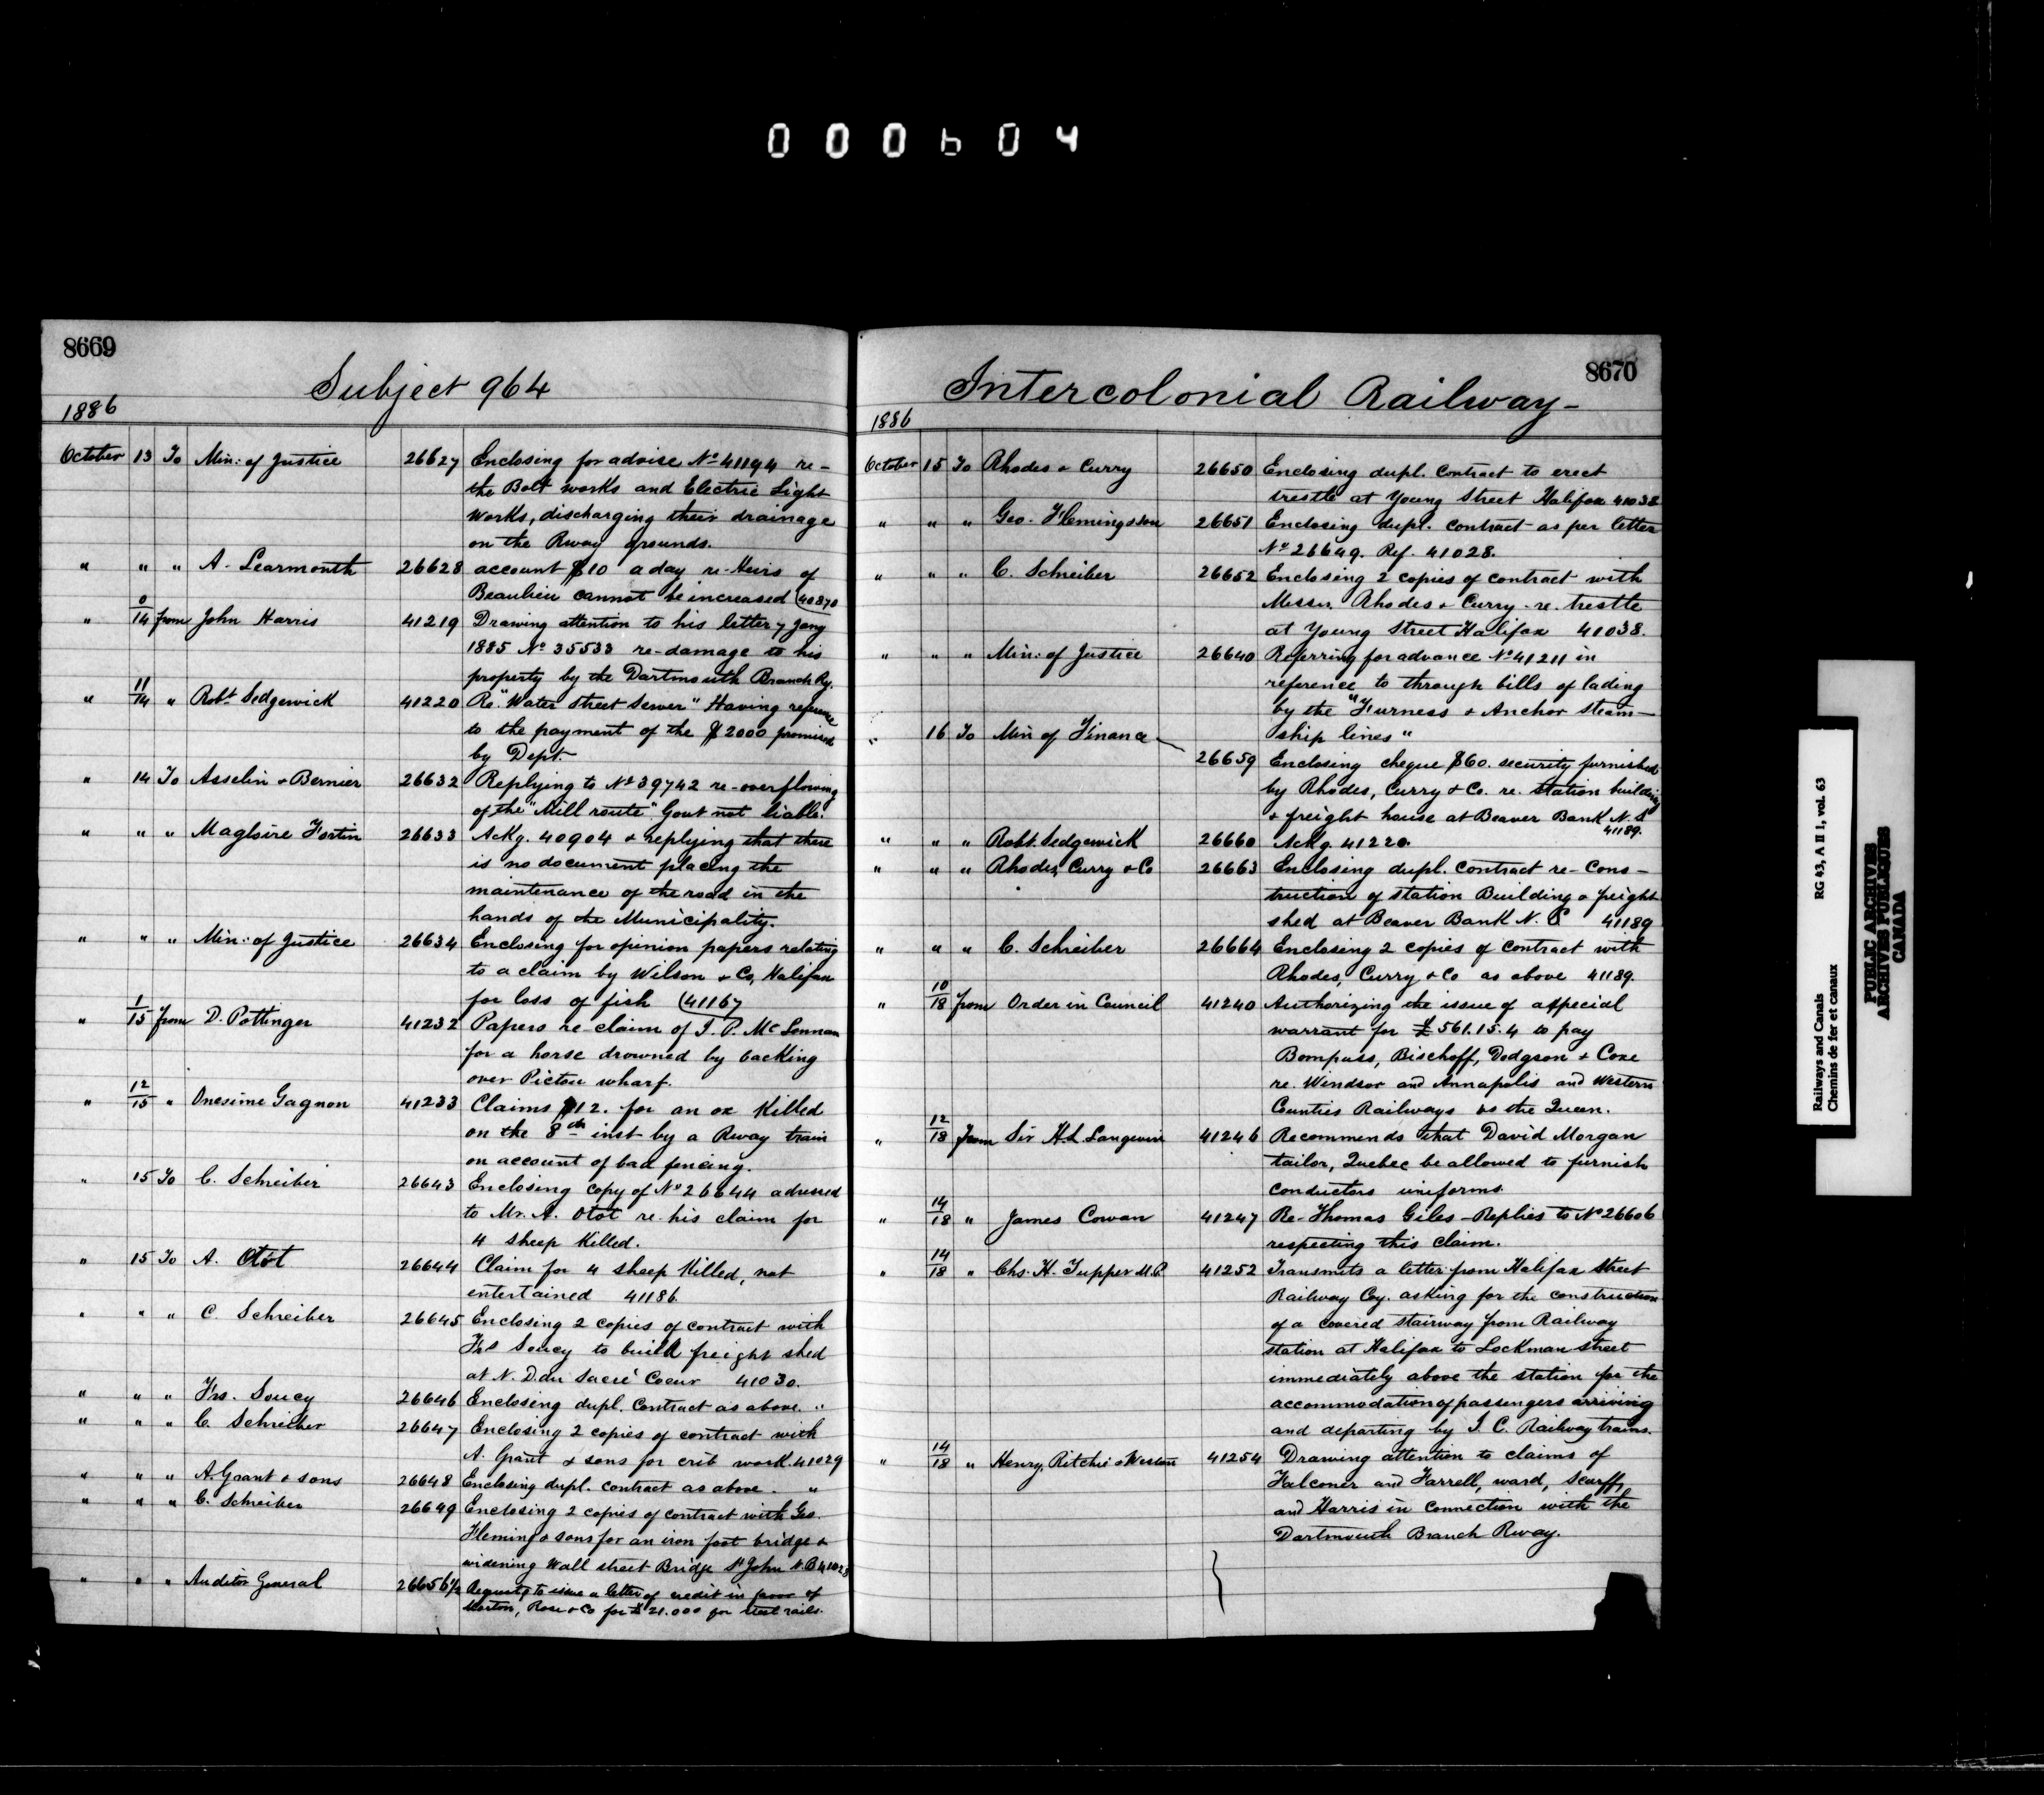 000604
8669
Subject 964
1886
October 13 To Min: of Justice 26627 Enclosing for advise No 41194 re-
the Bolt works and Electric Light
Works, discharging their drainage
on the Rway grounds.
" " " A. Learmonth 26628 account $10 a day re-Heirs of
Beaulieu cannot be increased (40870
" 0/14 from John Harris 41219 Drawing attention to his letter 7 Jany
1885 No 35533 re-damage to his
property by the Dartmouth Branch Ry.
" 11/14 " Robt Sedgewick 41220 Re "Water Street Sewer" Having reference
to the payment of the $2000 promised
by Dept.
" 14 To Asselin & Bernier 26632 Replying to No 39742 re-overflowing
of the "Mill route" Govt not liable.
" " " Magloire Fortin 26633 Ackg. 40904 & replying that there
is no document placing the
maintenance of the road in the
hands of the Municipality.
" " " Min: of Justice 26634 Enclosing for opinion papers relating
to a claim by Wilson & Co, Halifax
for loss of fish (41167
" 1/15 from D. Pottinger 41232 Papers re claim of J. P. McLennan
for a horse drowned by backing
over Pictou wharf.
" 12/15 " Onesime Gagnon 41233 Claims $12. for an ox killed
on the 8th inst by a Rway train
on account of bad fencing.
" 15 To C. Schreiber 26643 Enclosing copy of No 26644 adressed
to Mr. A. Otot re his claim for
4 sheep killed.
" 15 To A. Otot 26644 Claim for 4 sheep killed, not
entertained 41186.
" " " C. Schreiber 26645 Enclosing 2 copies of contract with
Frs Soucy to build freight shed
at N. D. du Sacré Coeur 41030.
" " " Frs. Soucy 26646 Enclosing dupl. Contract as above. "
" " " C. Schreiber 26647 Enclosing 2 copies of contract with
A. Grant & sons for crib work. 41029
" " " A. Grant & sons 26648 Enclosing dupl. contract as above. "
" " " C. Schreiber 26649 Enclosing 2 copies of contract with Geo.
Fleming & sons for an iron foot bridge &
widening Wall street Bridge St John N.B 41028
" " " Auditor General 26656½ Request to issue a letter of credit in favor of
Morton, Rose & Co for £21.000 for steel rails.
8670
Intercolonial Railway-
1886
October 15 To Rhodes & Curry 26650 Enclosing dupl. Contract to erect
trestle at Young Street Halifax 41038
" " " Geo. Fleming & son 26651 Enclosing dupl. contract as per letter
No 26649. Ref. 41028.
" " " C. Schreiber 26652 Enclosing 2 copies of contract with
Messrs Rhodes & Curry re. trestle
at Young Street Halifax 41038.
" " " Min: of Justice 26640 Referring for advance No 41211 in
reference to through bills of lading
by the "Furness & Anchor Steam-
ship lines"
" 16 To Min of Finance
26659 Enclosing cheque $60. security furnished
by Rhodes, Curry & Co. re. station building
& freight house at Beaver Bank N. S
41189.
" " " Robt. Sedgewick 26660 Ackg. 41220.
" " " Rhodes, Curry & Co 26663 Enclosing dupl. Contract re-Cons-
truction of station Building & freight
shed at Beaver Bank N. S 41189
" " " C. Schreiber 26664 Enclosing 2 copies of contract with
Rhodes, Curry & Co as above 41189.
" 10/18 from Order in Council 41240 Authorizing the issue of a special
warrant for £561.15.4 to pay
Bompass, Bischoff, Dodgson & Coxe
re. Windsor and Annapolis and Western
Counties Railways vs the Queen.
" 12/18 from Sir H.L. Langevin 41246 Recommends that David Morgan
tailor, Quebec be allowed to furnish
conductors uniforms.
" 14/18 " James Cowan 41247 Re-Thomas Giles-Replies to No 26606
respecting this claim.
" 14/18 " Chs. H. Tupper M.P. 41252 Transmits a letter from Halifax Street
Railway Coy. asking for the construction
of a covered stairway from Railway
station at Halifax to Lockman street
immediately above the station for the
accommodation of passengers arriving
and departing by I. C. Railway trains.
" 14/18 " Henry, Ritchie & Weston 41254 Drawing attention to claims of
Falconer and Farrell, ward, Scarff,
and Harris in connection with the
Dartmouth Branch Rway.
Railways and Canals RG 43, A II 1, vol. 63
Chemins de fer et canaux
PUBLIC ARCHIVES
ARCHIVES PUBLIQUES
CANADA